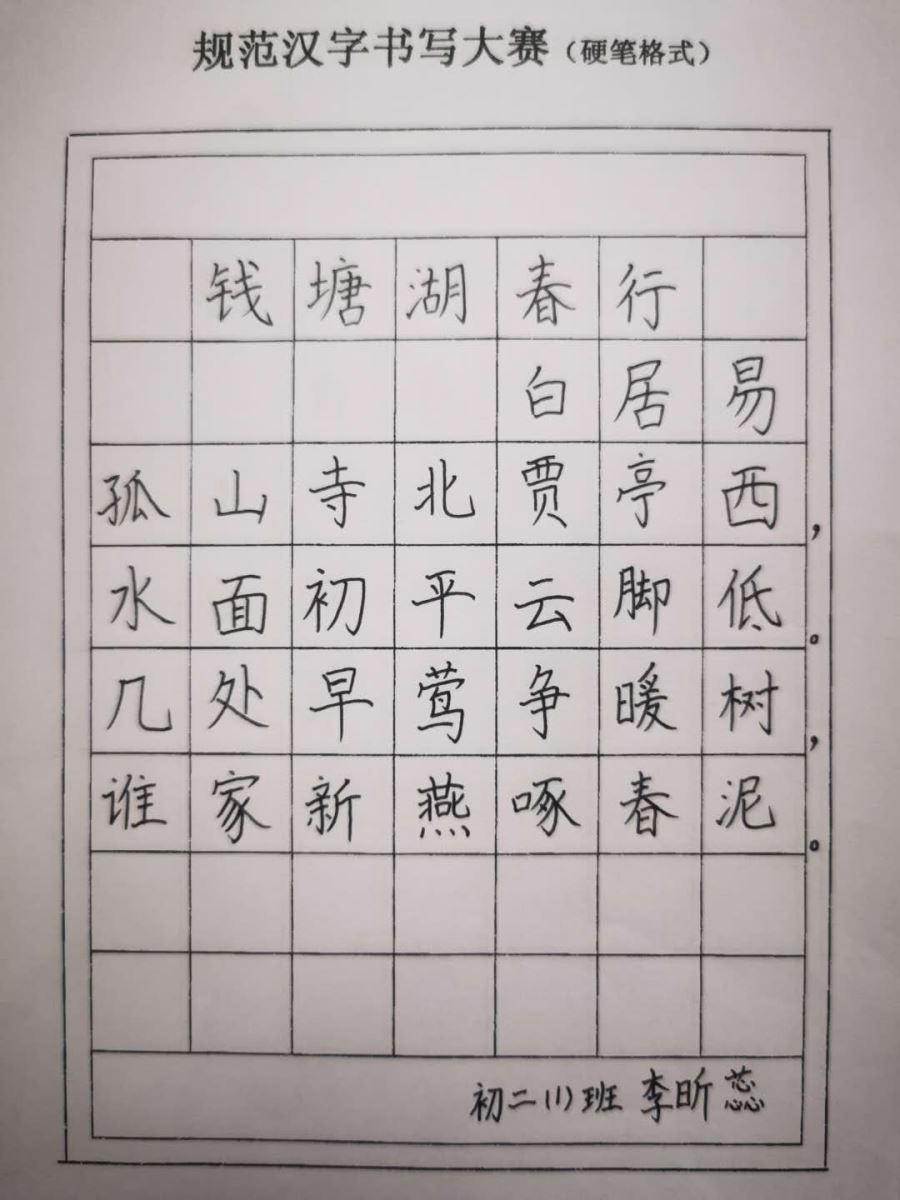 规范汉字书写大赛（硬笔格式）
钱塘湖春行
白居易
孤山寺北贾亭西，
水面初平云脚低。
几处早莺争暖树，
谁家新燕啄春泥。
初二(1)班 李昕蕊